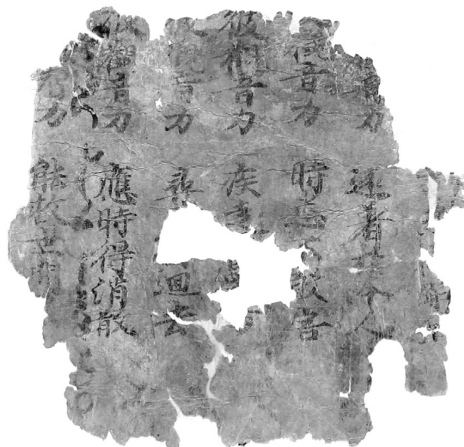 音力 還著於本人
觀音力 時悉不敢害
彼觀音力 疾走
觀音力 尋 迴去
彼觀音力 應時得消散
音力 能救世間